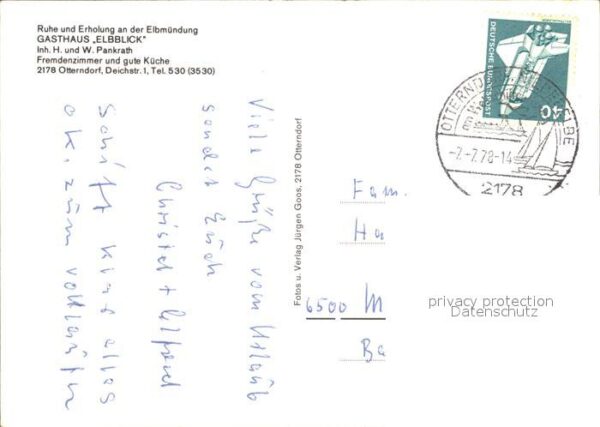 Ruhe und Erholung an der Elbmündung
GASTHAUS „ELBBLICK"
Inh. H. und W. Pankrath
Fremdenzimmer und gute Küche
2178 Otterndorf, Deichstr. 1, Tel. 530 (3530)
DEUTSCHE BUNDESPOST
40
OTTERNDORF ELBE
-7.-7.78-14
2178
Viele Grüße vom Urlaub
sendet Euch
Christel + Alfred
Schrift kind alles
o.k. zum
Fotos u. Verlag Jürgen Goos, 2178 Otterndorf
Fam.
Ha
6500 M
Ba
privacy protection
Datenschutz